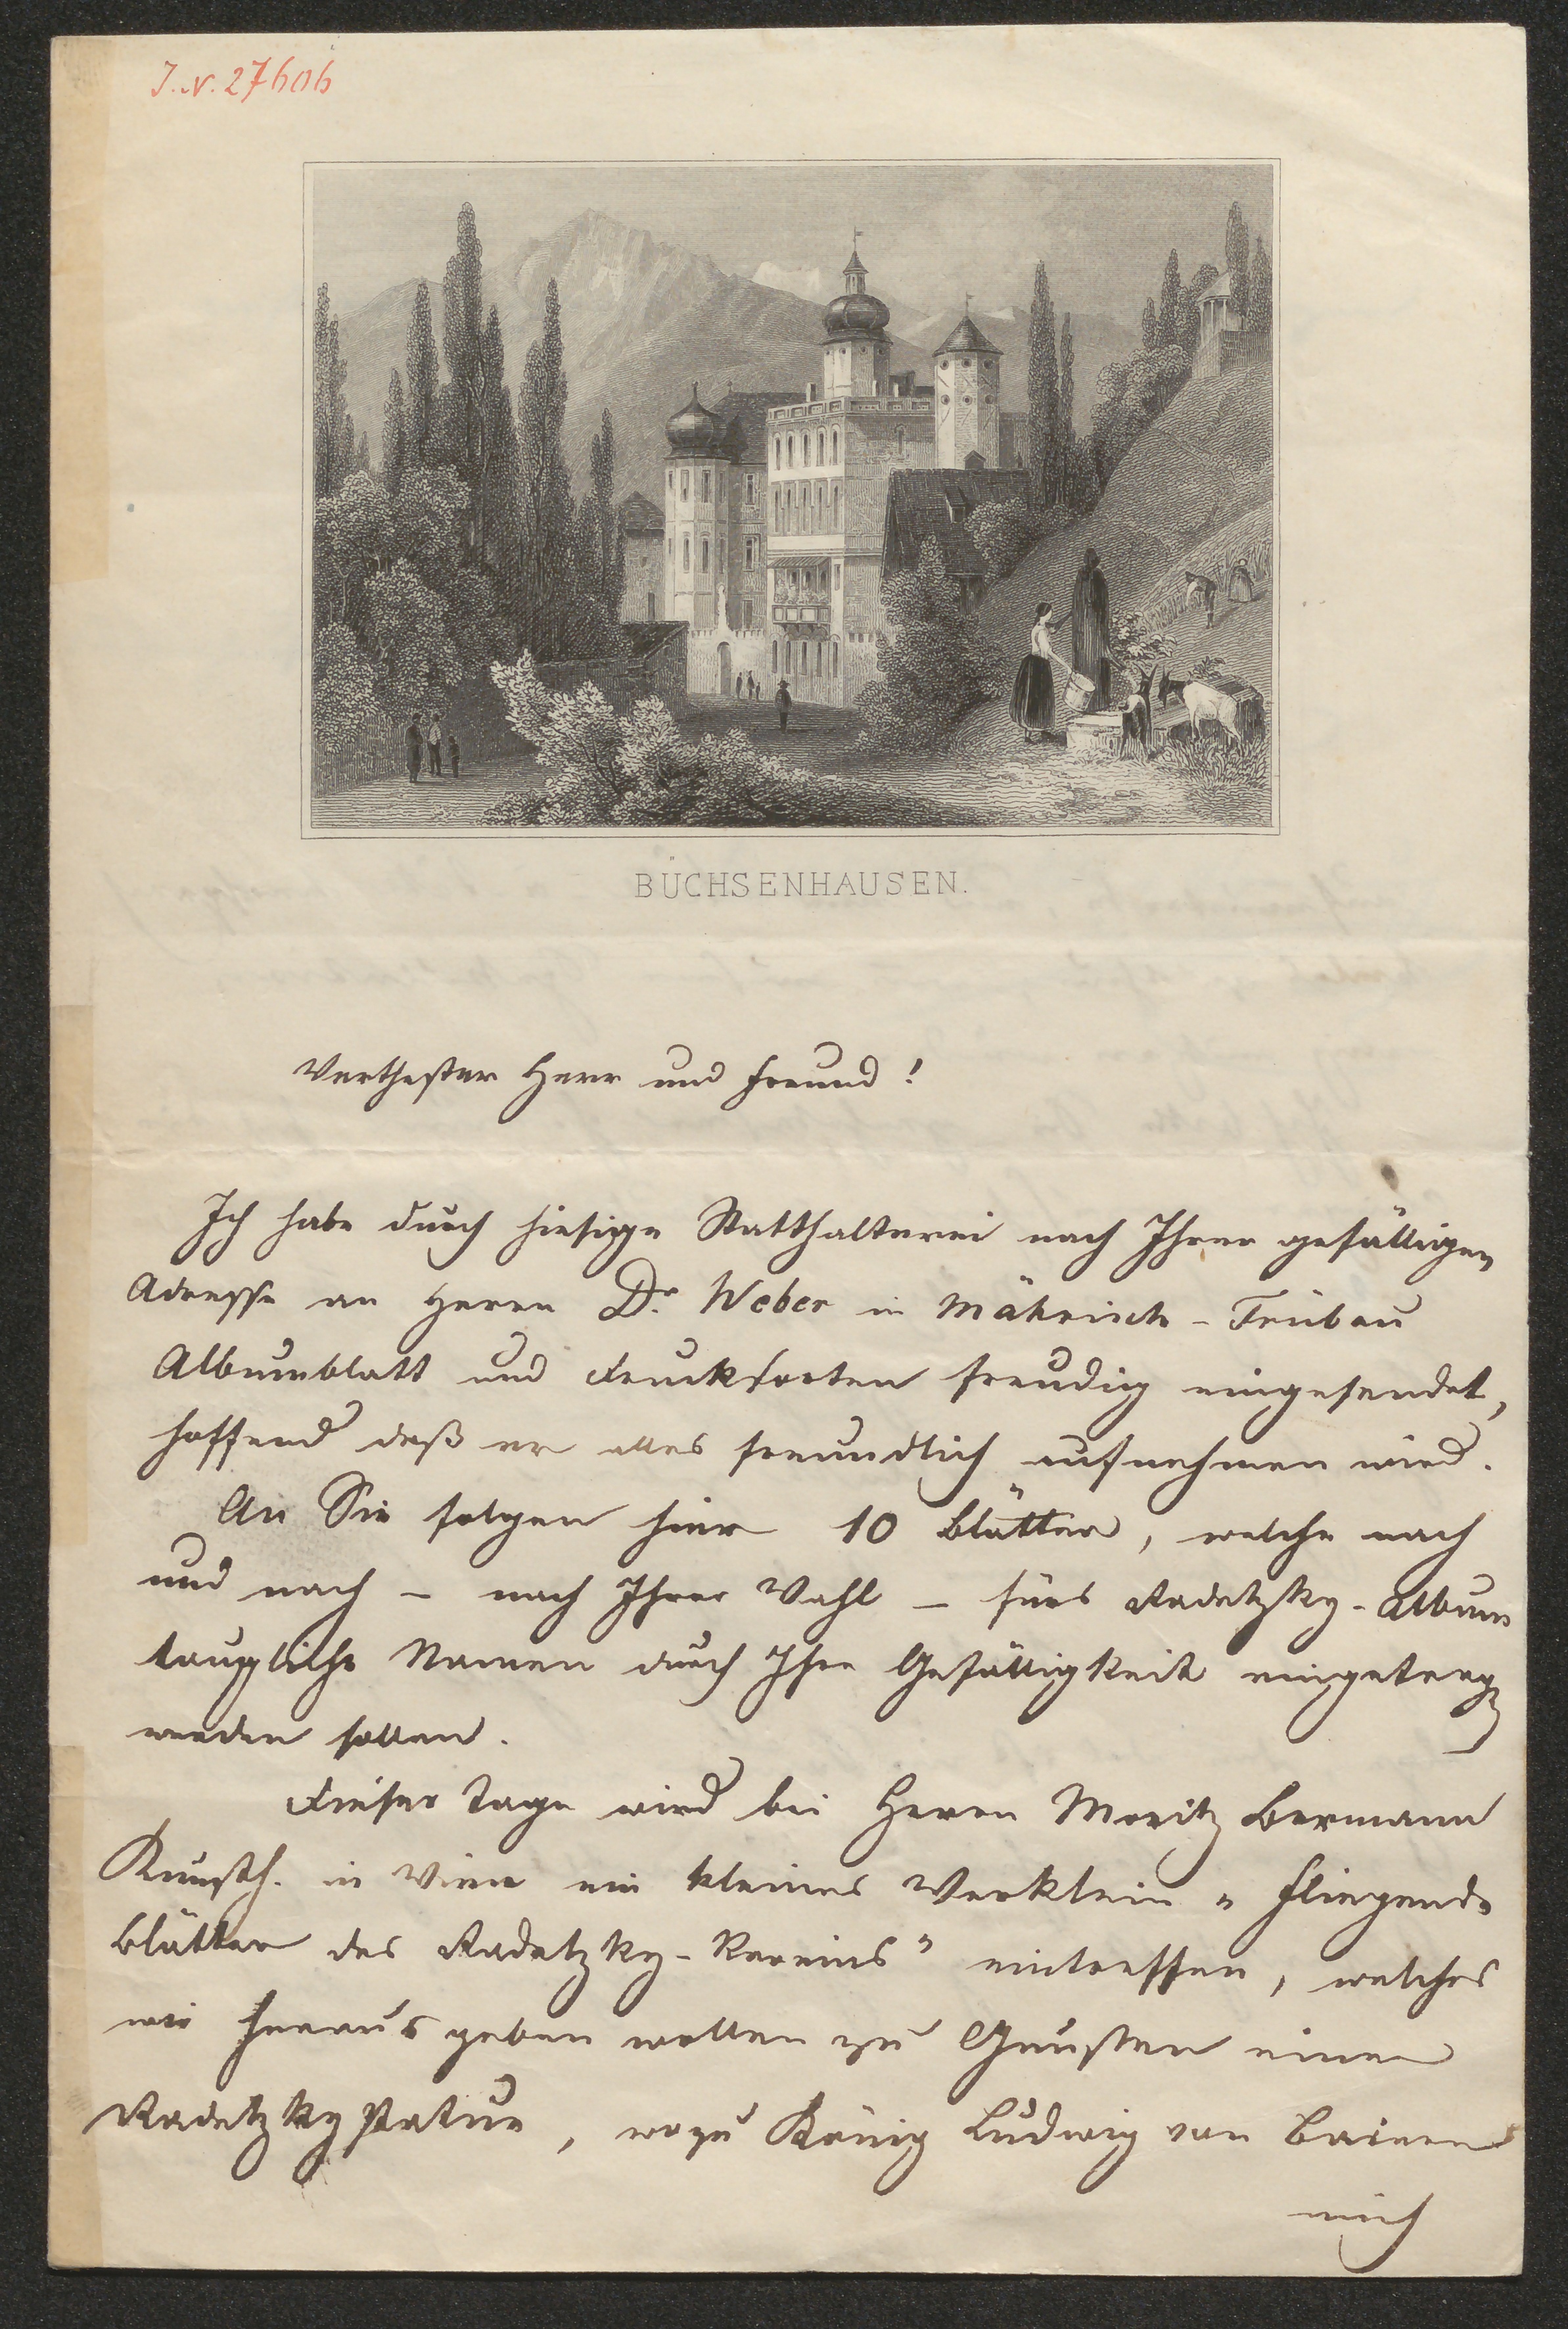 J. N. 27606
BÜCHSENHAUSEN.
Werthester Herr und Freund!
Ich habe durch hiesige Statthalterei nach Ihrer gefälligen
Adresse an Herrn Dr. Weber in Mährisch-Trübau
Albumblatt und Drucksorten freudig eingesendet,
hoffend daß er alles freundlich aufnehmen wird.
An Sie folgen hier 10 Blätter, welche nach
und nach – nach Ihrer Wahl – fürs Radetzky-Album
taugliche Namen durch Ihre Gefälligkeit eingetragen
werden sollen.
Dieser Tage wird bei Herrn Moritz Bermann
Kunsth. in Wien ein kleines Werklein „Fliegende
Blätter des Radetzky-Vereins" eintreffen, welches
wir herausgeben wollen zu Gunsten einer
Radetzkystatue, wozu König Ludwig von Baiern
mich